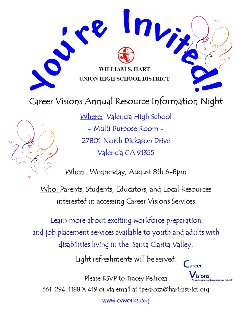 You're Invited!
WILLIAM S. HART
UNION HIGH SCHOOL DISTRICT
Career Visions Annual Resource Information Night
Where: Valencia High School
~ Multi Purpose Room ~
27801 North Dickason Drive
Valencia CA 91355
When: Wednesday, August 8th 6-8pm
Who: Parents, Students, Educators, and Local Resources
interested in accessing Career Visions Services.
Learn more about exciting workforce preparation
and job placement services available to youth and adults with
disabilities living in the Santa Clarita Valley.
Light refreshments will be served.
Career
Visions
Please RSVP to Tracey
or via email at